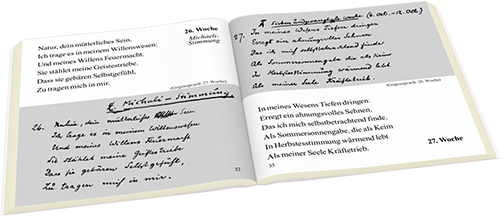 Natur, dein mütterliches Sein,
Ich trage es in meinem Willenswesen;
Und meines Willens Feuermacht,
Sie stählet meine Geistestriebe,
Dass sie gebären Selbstgefühl,
Zu tragen mich in mir.
26. Woche
Michaeli-
Stimmung
(Gegenspruch: 27. Woche)
Michaeli-Stimmung
26. Natur, dein mütterliches Sein
Ich trage es in meinem Willenswesen
Und meines Willens Feuermacht
Sie stählet meine Geistestriebe
Dass sie gebären Selbstgefühl,
Zu tragen mich in mir.
32
(6. Oct. - 12. Oct.)
27. In meines Wesens Tiefen dringen
Erregt ein ahnungsvolles Sehnen
Das ich mich selbstbetrachtend finde
Als Sommersonnengabe, die als Keim
In Herbstesstimmung wärmend lebt
Als meiner Seele Kräftetrieb.
(Gegenspruch: 26. Woche)
In meines Wesens Tiefen dringen:
Erregt ein ahnungsvolles Sehnen,
Das ich mich selbstbetrachtend finde,
Als Sommersonnengabe, die als Keim
In Herbstesstimmung wärmend lebt
Als meiner Seele Kräftetrieb.
27. Woche
33